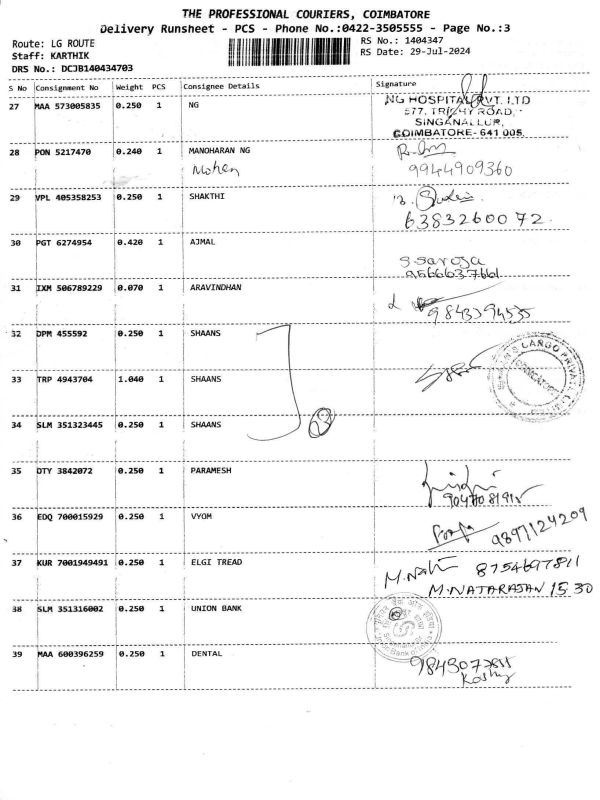 THE PROFESSIONAL COURIERS, COIMBATORE
Delivery Runsheet - PCS - Phone No.:0422-3505555 - Page No.:3
Route: LG ROUTE
Staff: KARTHIK
DRS No.: DCJB140434703
RS No.: 1404347
RS Date: 29-Jul-2024
S No Consignment No Weight PCS Consignee Details Signature
27 MAA 573005835 0.250 1 NG
NG HOSPITAL PVT. LTD
577, TRICHY ROAD,
SINGANALLUR,
COIMBATORE- 641 005.
28 PON 5217470 0.240 1 MANOHARAN NG
Mohen
9944909360
29 VPL 405358253 0.250 1 SHAKTHI
6383260072
30 PGT 6274954 0.420 1 AJMAL
S. Saroja
9566637661
31 IXM 506789229 0.070 1 ARAVINDHAN
9843394535
32 DPM 455592 0.250 1 SHAANS
33 TRP 4943704 1.040 1 SHAANS
CARGO PRIVATE
34 SLM 351323445 0.250 1 SHAANS
3
35 DTY 3842072 0.250 1 PARAMESH
36 EDQ 700015929 0.250 1 VYOM
9897124209
37 KUR 7001949491 0.250 1 ELGI TREAD
M.Nat 8754697811
M.NATARAJAN 15.30
38 SLM 351316002 0.250 1 UNION BANK
Union Bank of India
39 MAA 600396259 0.250 1 DENTAL
Koshy